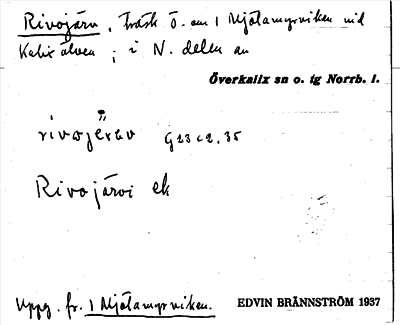 Rivojärv, träsk ö. om 1 Mjölamyrviken vid
Kalix älven ; i N. delen av
Överkalix sn o. tg Norrb. l.
rivojèrəv G23 c2. 35
Rivojärvi ek
Uppg. fr. 1 Mjölamyrviken. EDVIN BRÄNNSTRÖM 1937